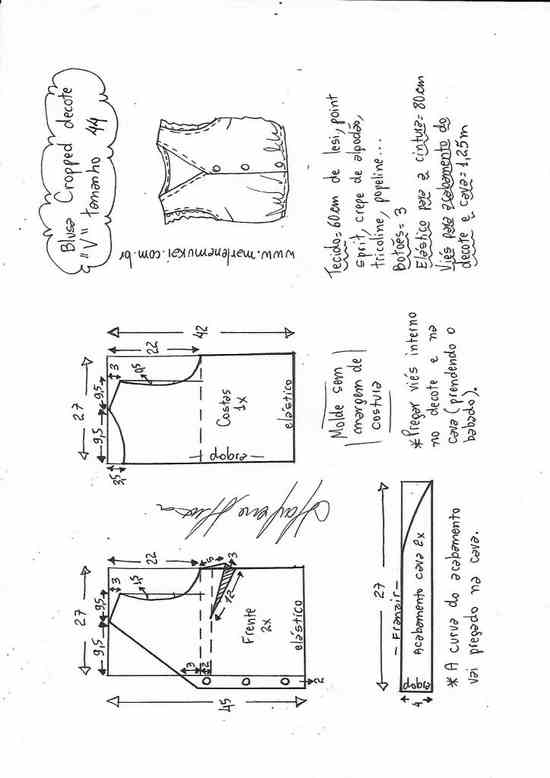 Blusa Cropped decote
"V" tamanho 44
www.marlenemukai.com.br
Tecido= 60cm de lesi, point
sprit, crepe de algodão,
tricoline, popeline...
Botões= 3
Elástico para a cintura= 80cm
Viés para acabamento do
decote e cava= 1,25m
42
22
3
9,5
9,5
27
3,5
Costas
1x
dobra
elástico
Molde sem
margem de
costura
*Pregar viés interno
no decote e na
cava (prendendo o
babado).
22
3
9,5
9,5
27
3
12
Frente
2x
elástico
3
2
2
45
27
- Franzir -
Acabamento cava 2x
dobra
4
* A curva do acabamento
vai pregado na cava.